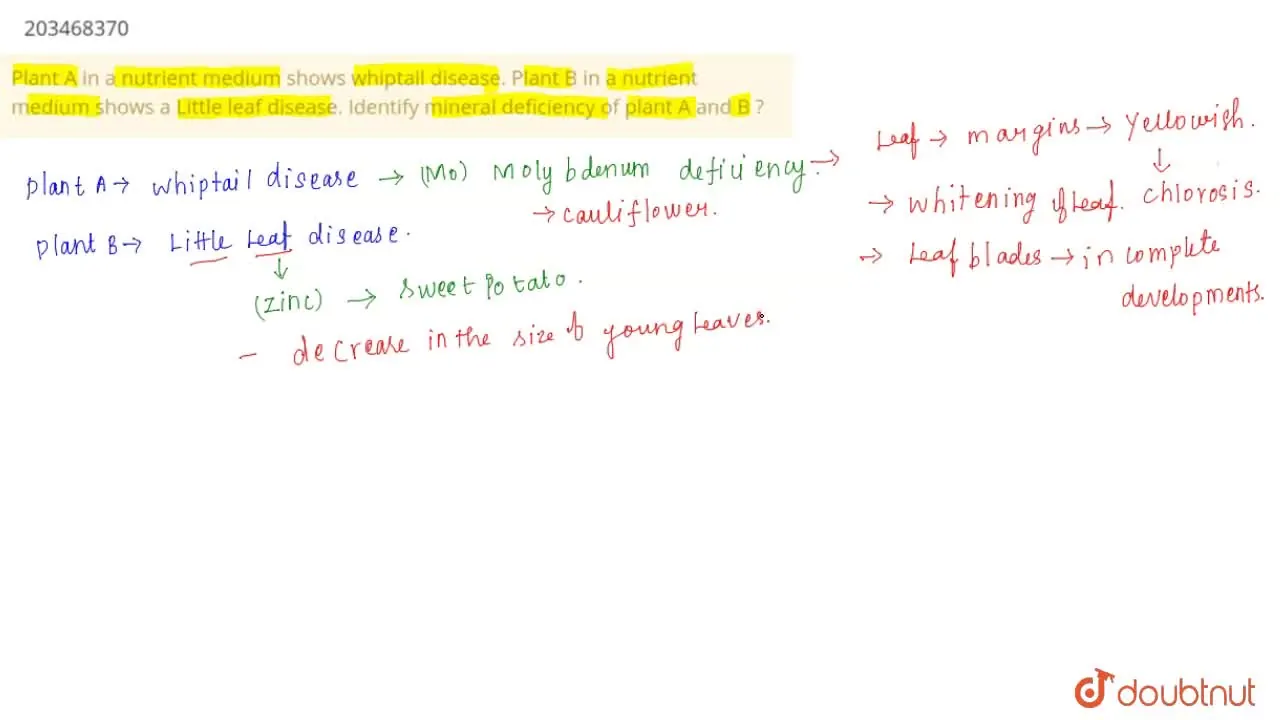 203468370
Plant A in a nutrient medium shows whiptail disease. Plant B in a nutrient
medium shows a Little leaf disease. Identify mineral deficiency of plant A and B ?
plant A → whiptail disease → (Mo) Molybdenum deficiency. →
→ cauliflower.
plant B → Little Leaf disease.
↓
(zinc) → sweet potato.
– decrease in the size of young leaves.
Leaf → margins → yellowish.
↓
→ whitening of Leaf. chlorosis.
→ Leaf blades → in complete
developments.
doubtnut